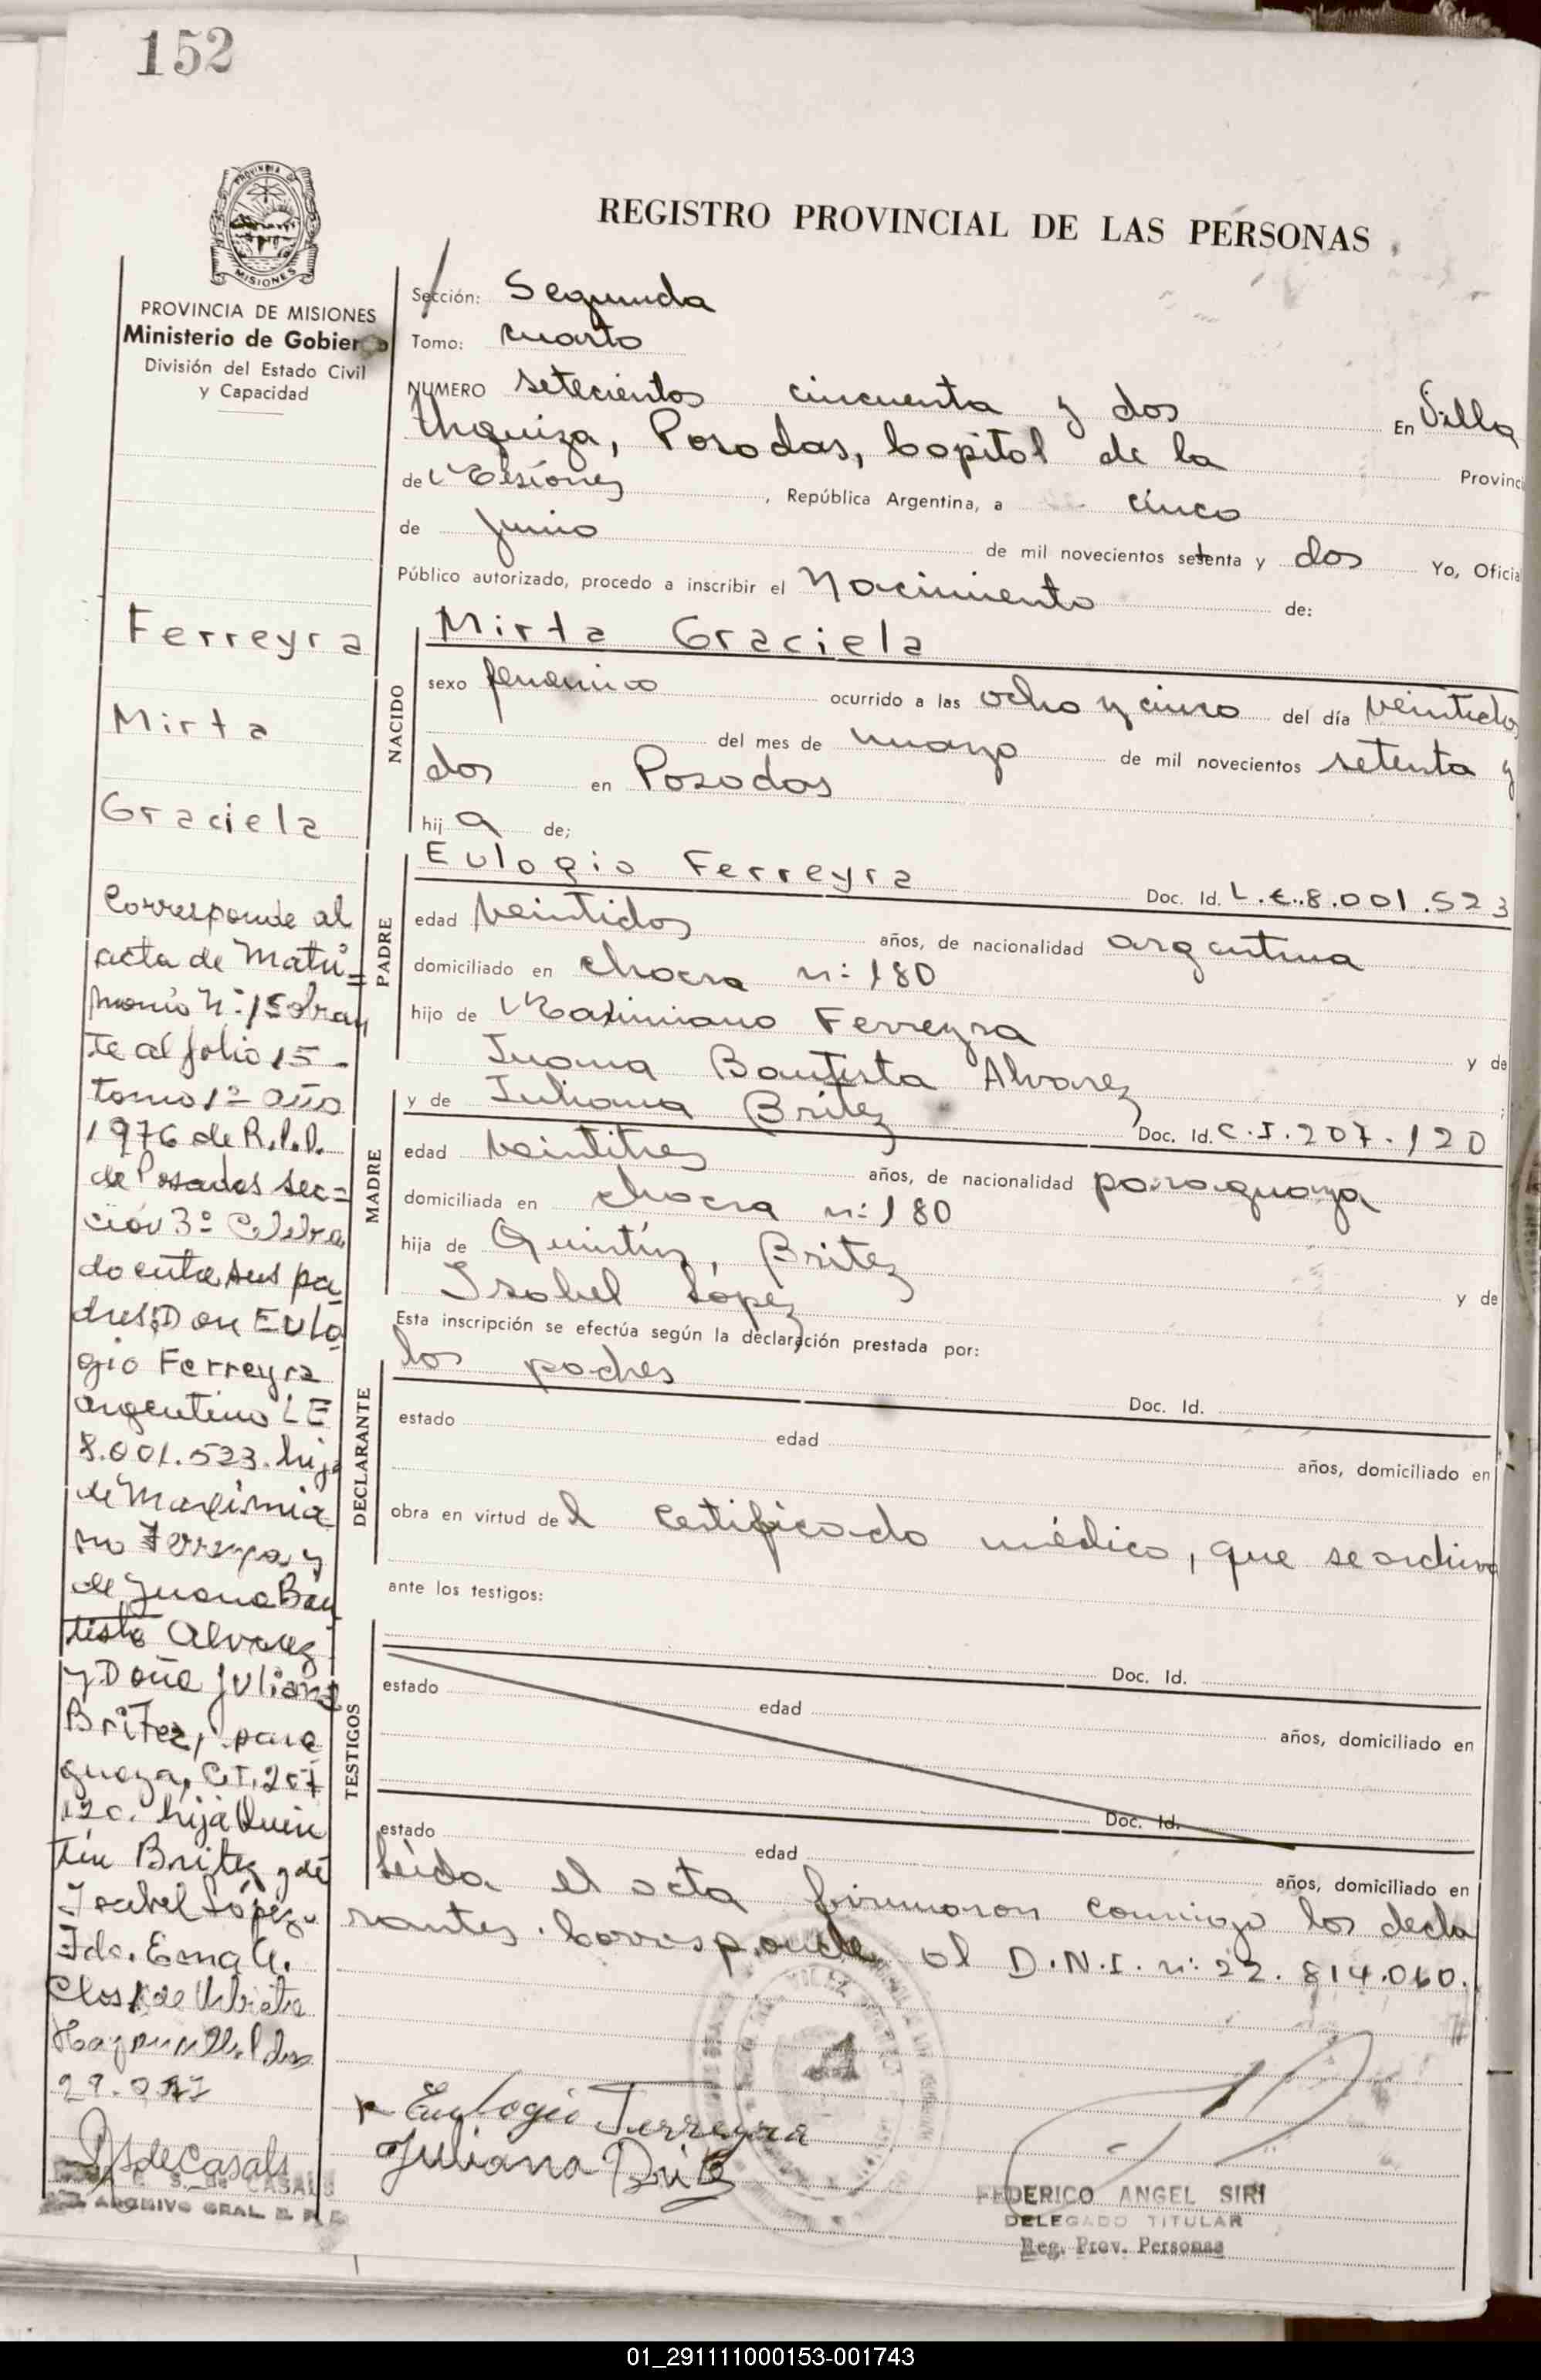 152
PROVINCIA DE MISIONES
MISIONES
PROVINCIA DE MISIONES
Ministerio de Gobierno
División del Estado Civil
y Capacidad
Ferreyra
Mirta
Graciela
Corresponde al
acta de Matri=
monio Nº 15 obran
te al folio 15-
tomo 1º año
1976 de R.P.P.
de Posadas sec=
ción 3º Celebra
do entre sus pa
dres: Don Eulo
gio Ferreyra
argentino LE
8.001.523. hijo
de Maximia
no Ferreyra y
de Juana Bau
tista Alvarez
y Doña Juliana
Britez, para
guaya, C.I. 207
120. hija Quin
tín Britez y de
Isabel López.
Fdo. Ema
de
CASALS
ARCHIVO GRAL. R. P. P.
REGISTRO PROVINCIAL DE LAS PERSONAS
Sección: Segunda
Tomo: cuarto
NUMERO setecientos cincuenta y dos En Villa
Urquiza, Posadas, Capital de la Provinci
de Misiones, República Argentina, a cinco
de junio de mil novecientos setenta y dos Yo, Oficia
Público autorizado, procedo a inscribir el Nacimiento de:
NACIDO
Mirta Graciela
sexo femenino ocurrido a las ocho y cinco del día veintidos
del mes de marzo de mil novecientos setenta y
dos en Posadas
hij a de;
PADRE
Eulogio Ferreyra Doc. Id. L.E. 8.001.523
edad veintidos años, de nacionalidad argentina
domiciliado en chacra nº 180
hijo de Maximiano Ferreyra y de
Juana Bautista Alvarez;
MADRE
y de Juliana Britez Doc. Id. C.I. 207.120
edad veintitres años, de nacionalidad paraguaya
domiciliada en chacra nº 180
hija de Quintín Britez y de
Isabel López
Esta inscripción se efectúa según la declaración prestada por:
DECLARANTE
los padres Doc. Id.
estado edad años, domiciliado en
obra en virtud de l certificado médico, que se archiva
ante los testigos:
TESTIGOS
Doc. Id.
estado edad años, domiciliado en
Doc. Id.
estado edad años, domiciliado en
Leída el acta firmaron conmigo los decla
rantes. Corresponde al D.N.I. nº 22.814.060.
Eulogio Ferreyra
Juliana Britez
FEDERICO ANGEL SIRI
DELEGADO TITULAR
Reg. Prov. Personas
01_291111000153-001743